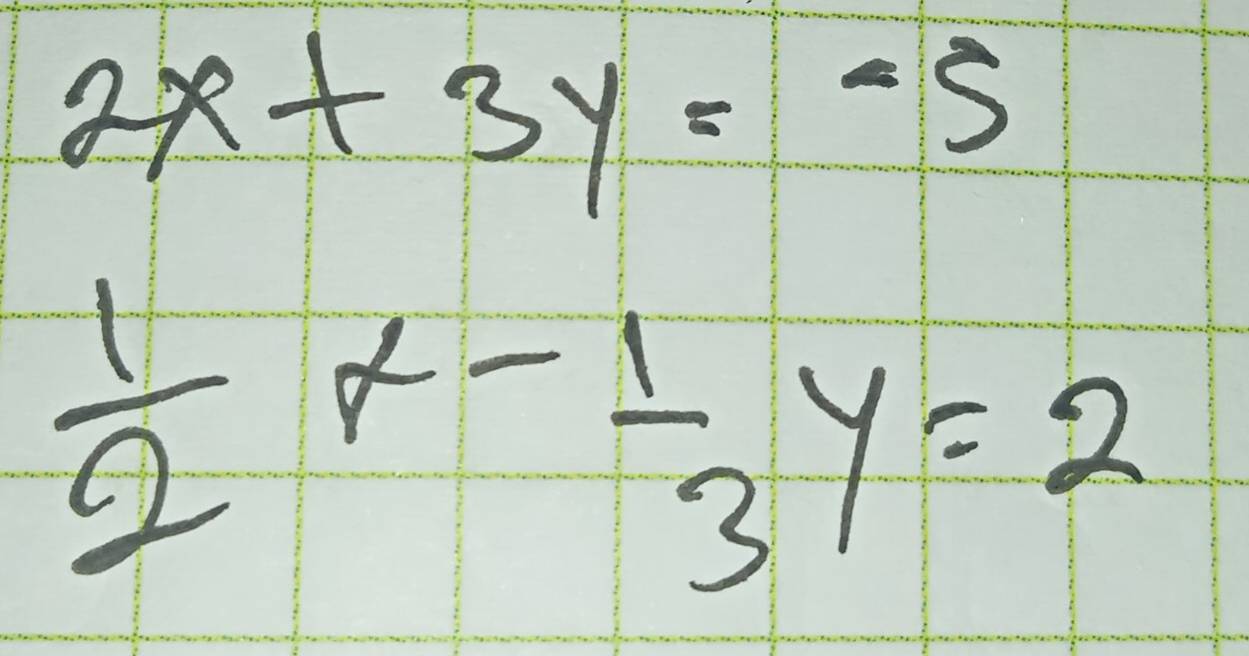 2x + 3y = -5
1/2 x - 1/3 y = 2